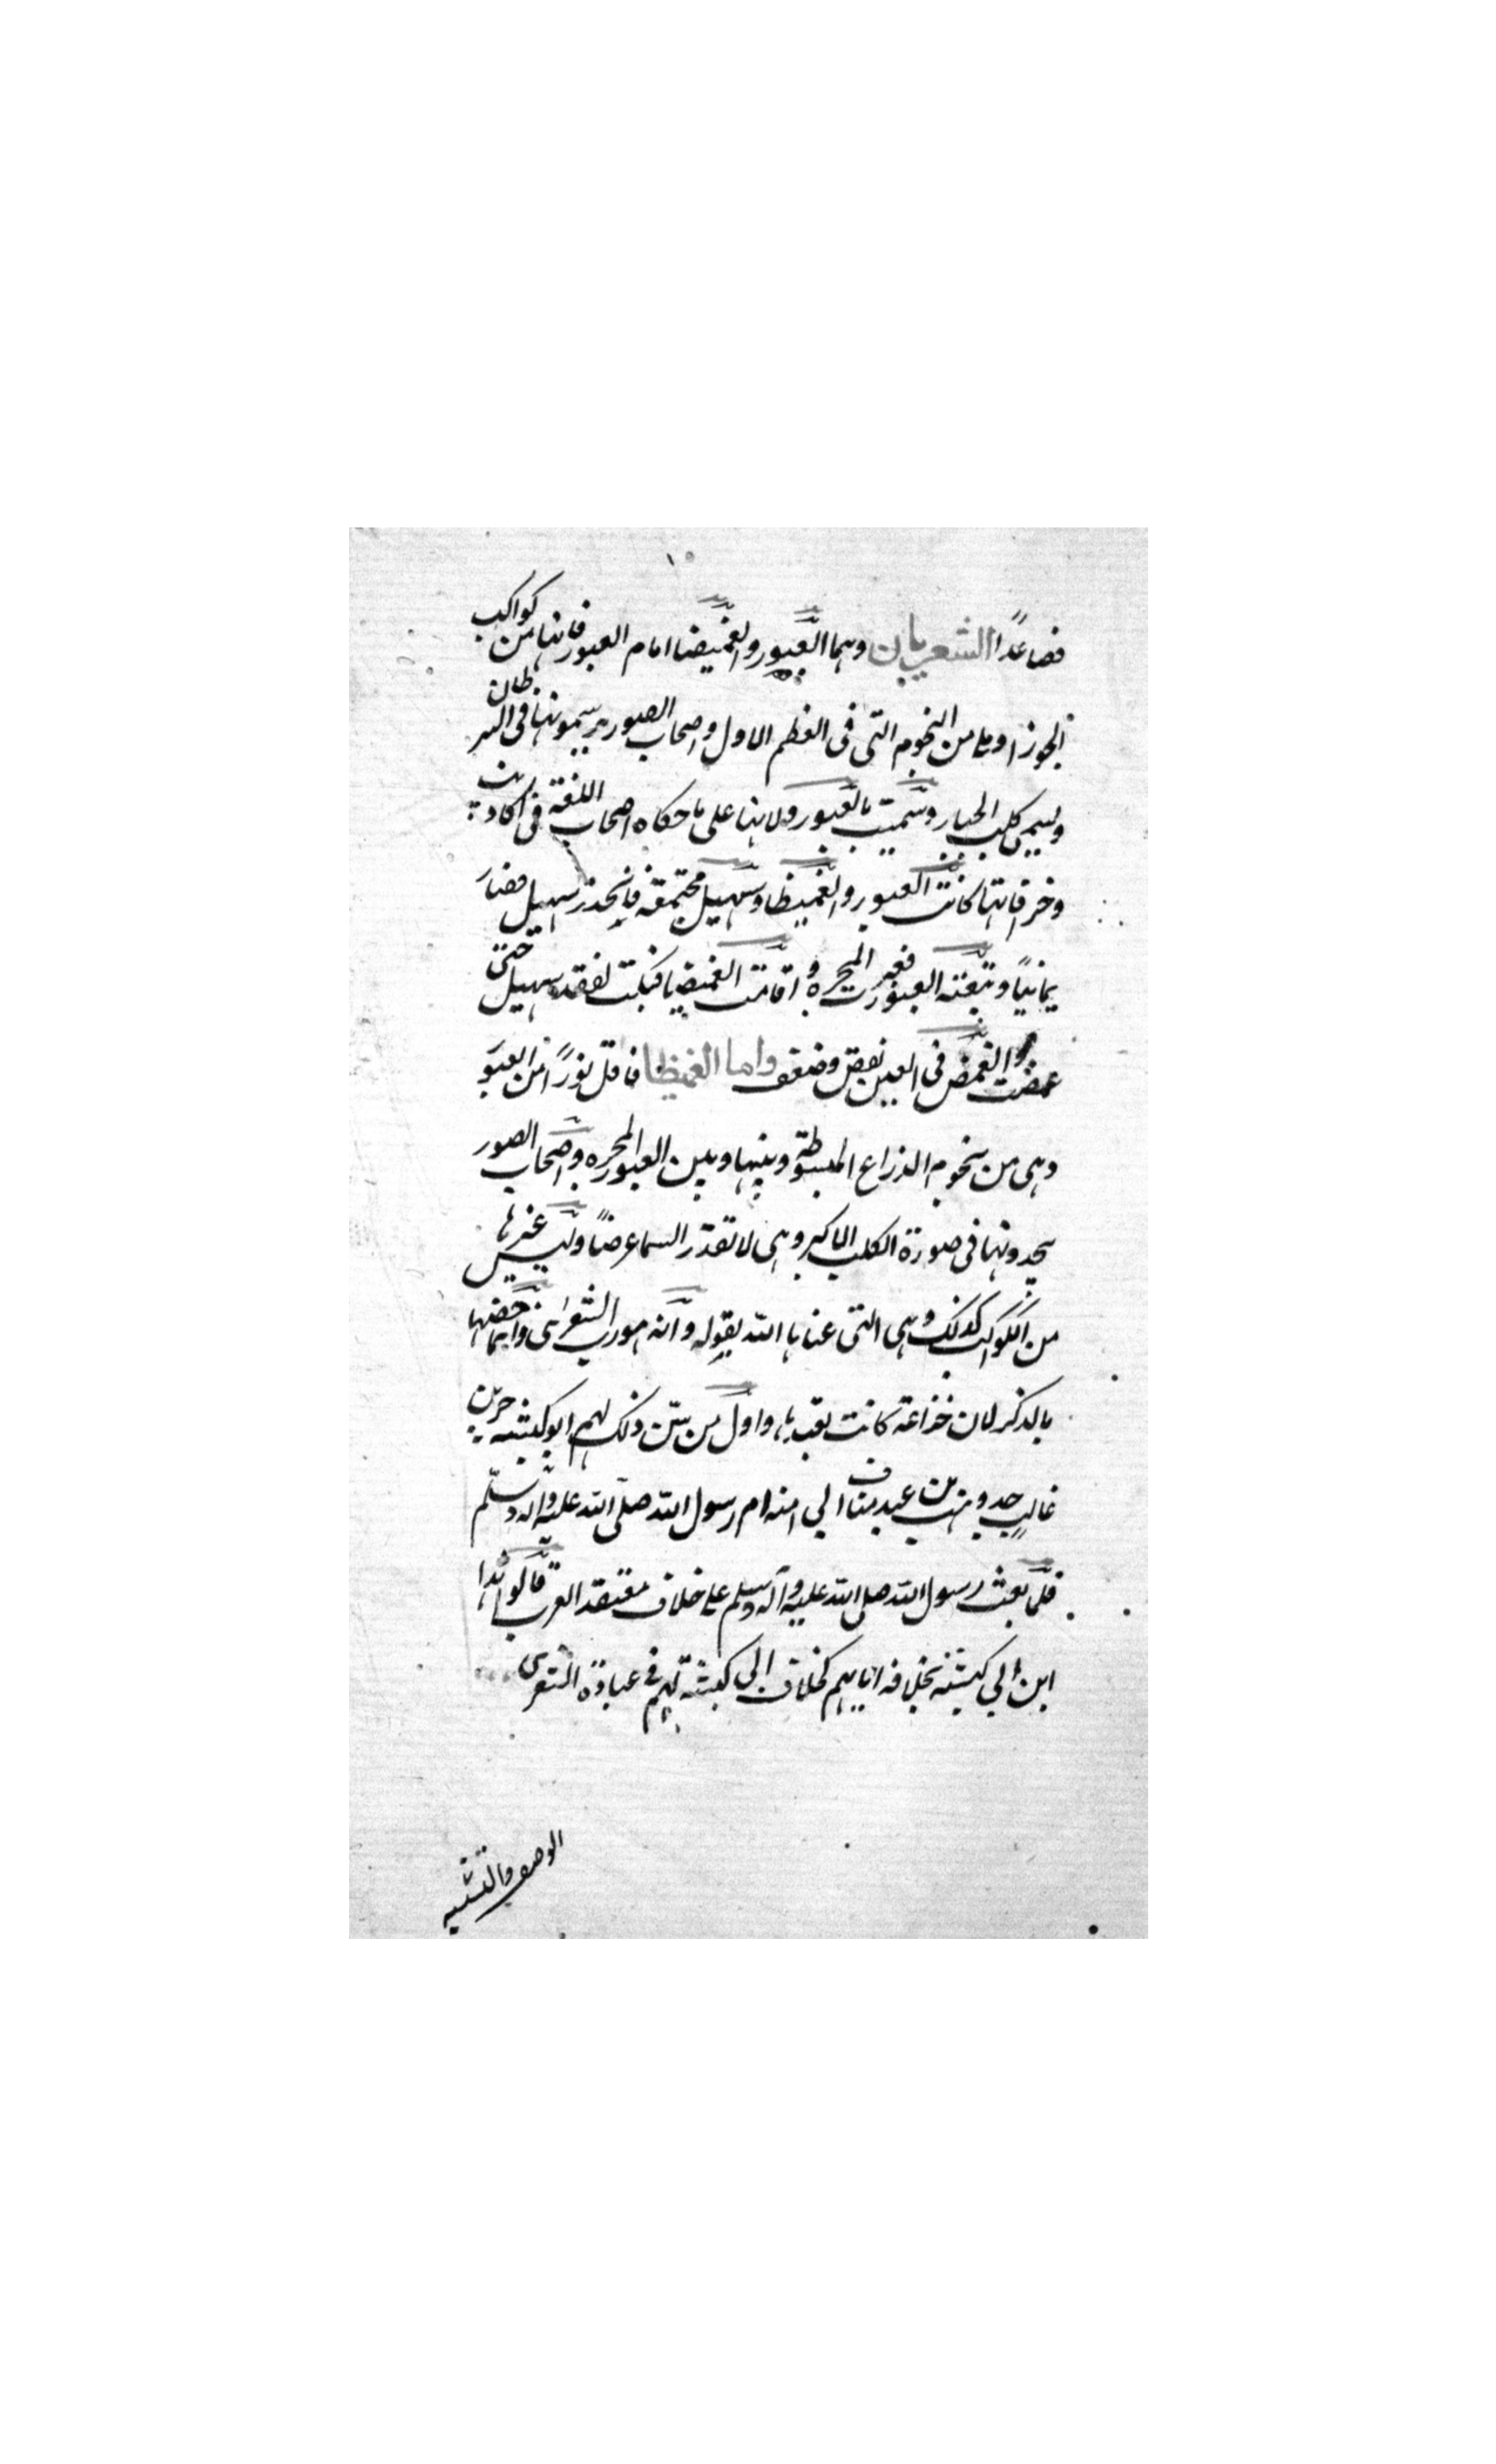 ١٥
فصاعدًا الشعريان وهما العبور والغميضا امام العبور فانها من كواكب
الجوزا وهى من النجوم التى فى العظم الاول واصحاب الصور يرسمونها فى السرطان
ويسمى كلب الجبار وسميت بالعبور ولانها على ما حكاه اصحاب اللغة فى اكاذيب
وخرافاتها كانت العبور والغميظا وسهيل مجتمعة فانحدر سهيل فصار
يمانيًا وتبعته العبور فعبرت المجره واقامت الغميضا فبكت لفقد سهيل حتى
غمضت والغمض فى العين نقص وضعف واما الغميظا فاقل نورًا من العبو
وهى من نجوم الذراع المبسوطة وبينها وبين العبور المجره واصحاب الصور
يحدونها فى صورة الكلب الاكبر وهى لا تقدر السما عرضًا وليس غيرها
من الكواكب كذلك وهى التى عناها الله بقوله وانه هو رب الشعرى وانما خصها
بالذكر لان خزاعة كانت تعبدها واول من سن ذلك لهم ابو كبشه حرب
غالب جد وهب من عبد مناف ابي امنه ام رسول الله صلى الله عليه واله وسلم
فلما بعث رسول الله صلى الله عليه وآله وسلم على خلاف معتقد العرب قالوا هذا
ابن ابي كبشة بخلافه اياهم كخلاف ابى كبشة لهم فى عبادة الشعرى
الوصف والتشبيه